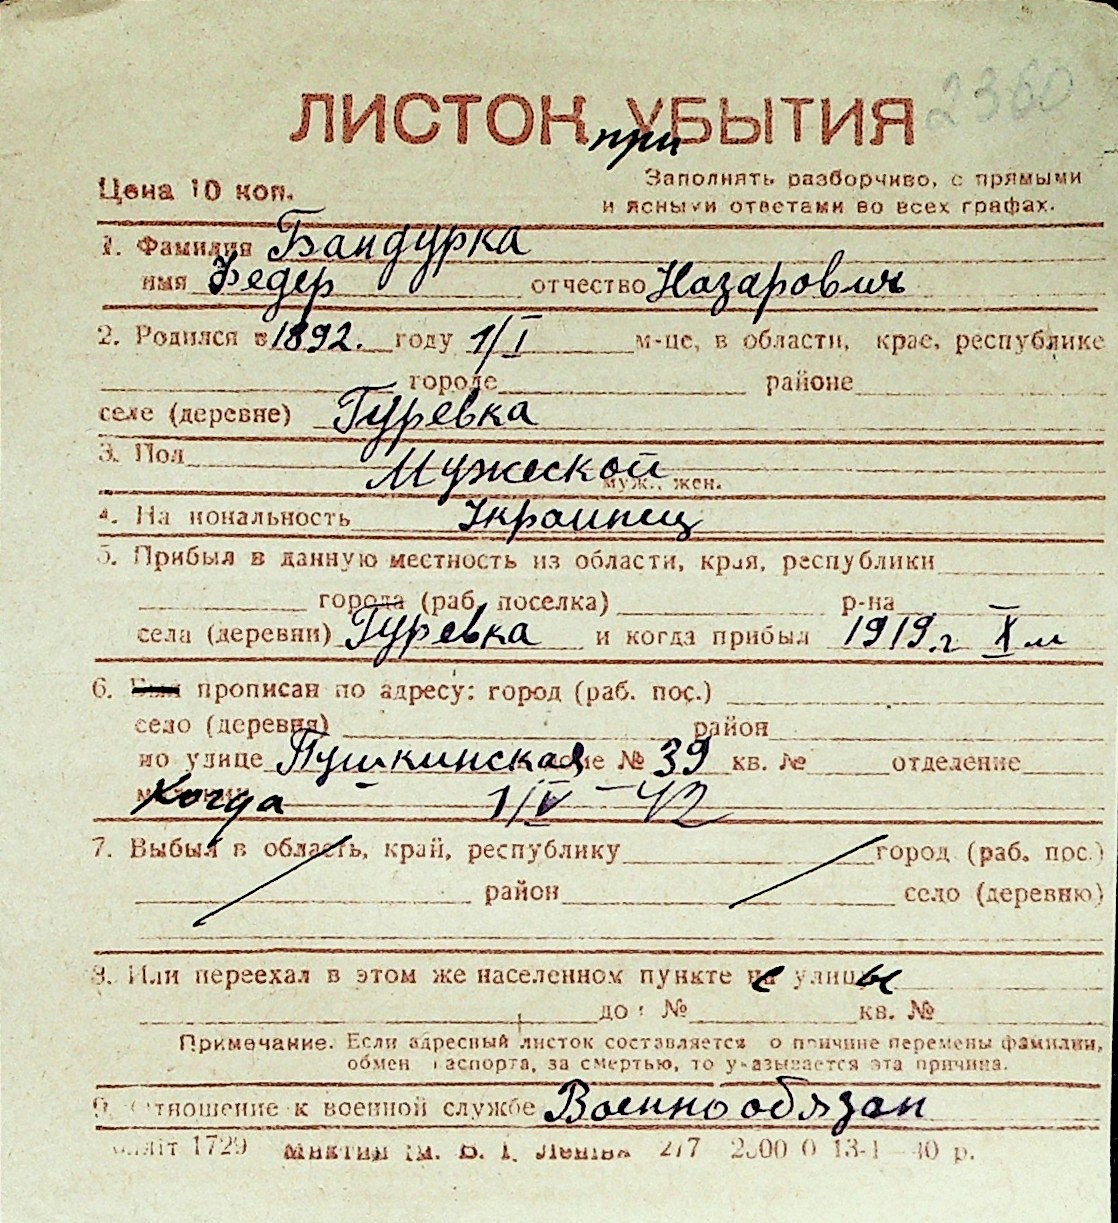 2360
ЛИСТОК УБЫТИЯ
при
Цена 10 коп.
Заполнять разборчиво, с прямыми
и ясными ответами во всех графах.
1. Фамилия Бандурка
имя Федер отчество Назарович
2. Родился в 1892. году 1/I м-це, в области, крае, республике
городе районе
селе (деревне) Гуревка
3. Пол Мужеской
муж., жен.
4. На иональность Украинец
5. Прибыл в данную местность из области, края, республики
города (раб. поселка) р-на
села (деревни) Гуревка и когда прибыл 1919.г X м
6. прописан по адресу: город (раб. пос.)
село (деревня) район
по улице Пушкинская № 39 кв. № отделение
Когда 1/IV - 42
7. Выбыл в область, край, республику город (раб. пос.)
район село (деревню)
8. Или переехал в этом же населенном пункте с улицы
до № кв. №
Примечание. Если адресный листок составляется о причине перемены фамилии,
обмен паспорта, за смертью, то указывается эта причина.
9. Отношение к военной службе Военнообязан
1729 2/7 13-1 40 р.